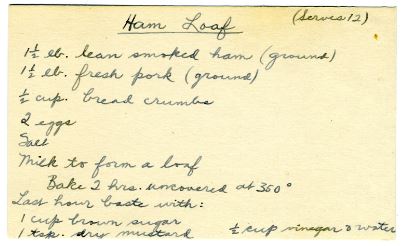 Ham Loaf (Serves 12)
1½ lb. lean smoked ham (ground)
1½ lb. fresh pork (ground)
½ cup. bread crumbs
2 eggs
Salt
Milk to form a loaf
Bake 2 hrs. uncovered at 350°
Last hour baste with:
1 cup brown sugar
1 tsp. dry mustard ½ cup vinegar & water